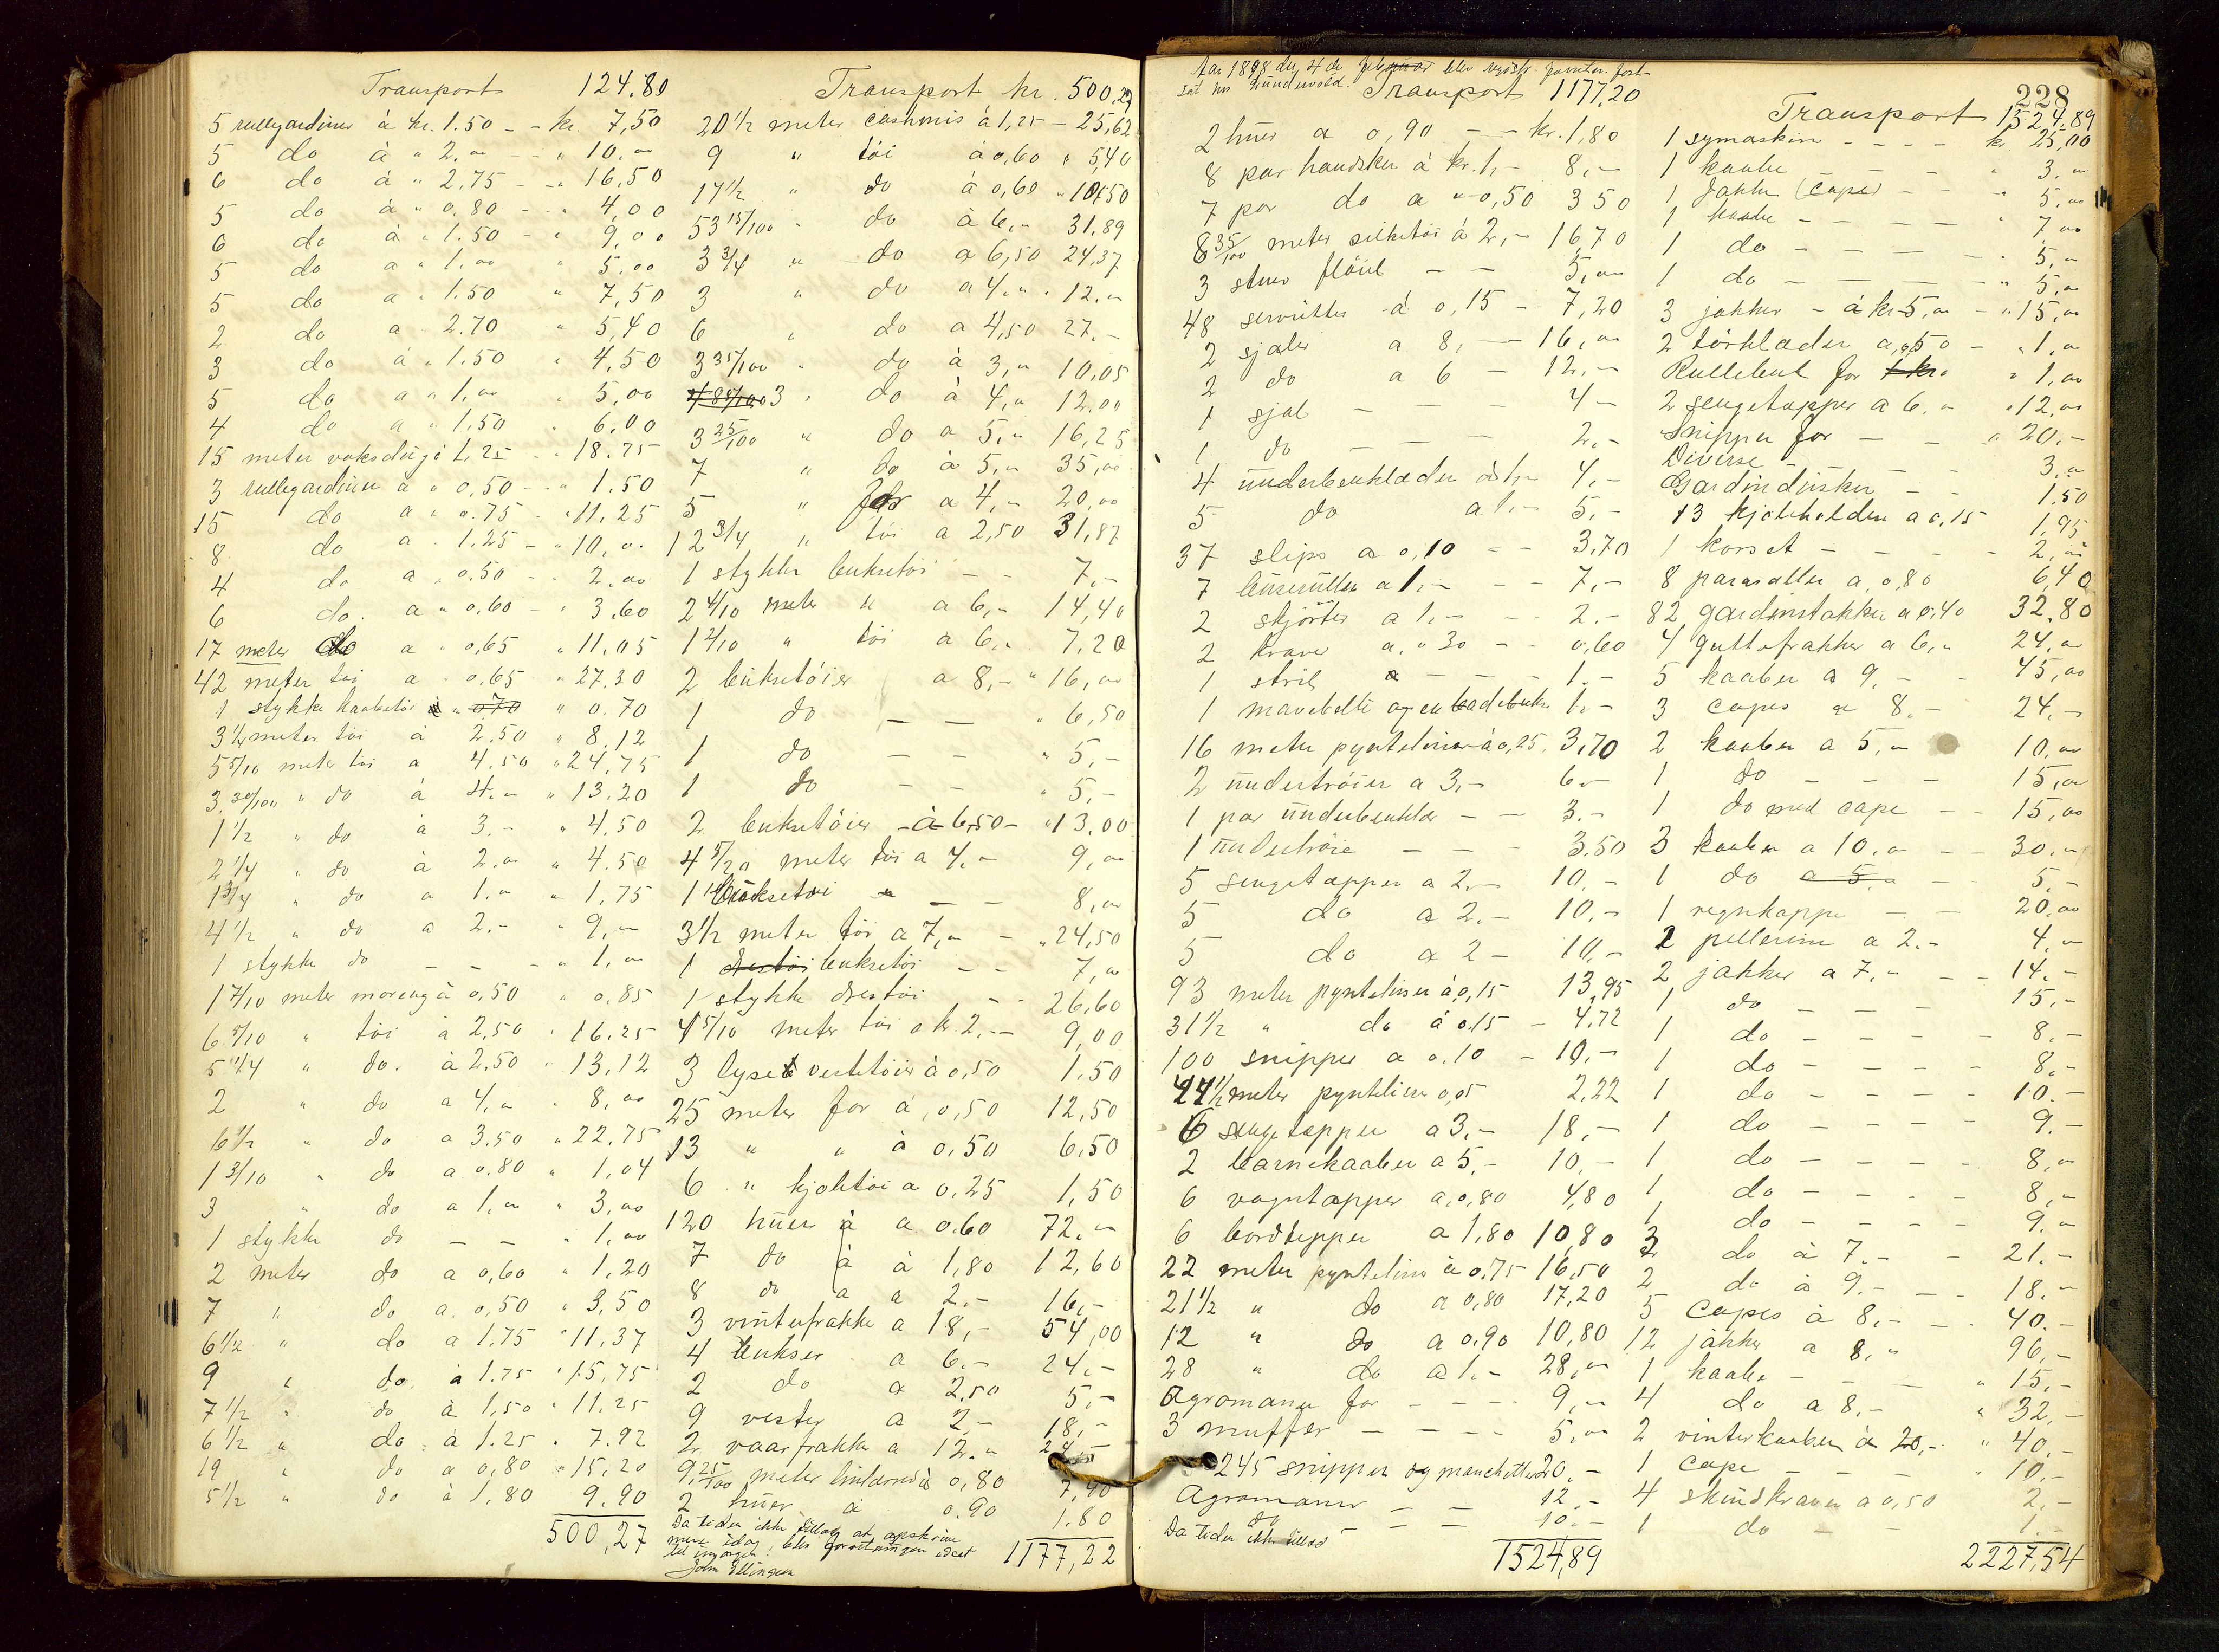 Transport 124.80
5 rullegardiner à kr. 1.50 - - kr. 7,50
5 do à " 2." - - " 10."
6 do à " 2,75 - - " 16,50
5 do à " 0.80 - - " 4,00
6 do à " 1.50 - " 9,00
5 do a " 1,00 " 5,00
5 do a " 1.50 " 7,50
2 do a " 2.70 " 5,40
3 do à " 1.50 " 4,50
5 do a " 1,00 " 5,00
4 do a " 1,50 " 6.00
15 meter voksdug à 1,25 - " 18.75
3 rullegardiner a " 0,50 - - " 1.50
15 do a " 0.75 - " 11,25
8 do a " 1.25 - " 10,00
4 do a " 0.50 - - 2.00
6 do. a " 0,60 - " 3.60
17 meter do a " 0,65 " 11,05
42 meter töi a " 0.65 " 27.30
1 stykke kaabetöi à " 0.70 " 0.70
3 1/4 meter töi à 2,50 " 8.12
5 5/10 meter töi a 4.50 " 24,75
3,30/100 " do à 4." " 13.20
1 1/2 " do à 3.- " 4,50
2 1/4 " do à 2." " 4.50
1 3/4 " do a 1." " 1,75
4 1/2 " do a 2.- " 9,"
1 stykke do - - - " 1,"
1 7/10 meter moreng à 0,50 " 0.85
6 5/10 " töi à 2,50 " 16.25
5 1/4 " do. à 2.50 " 13,12
2 " do a 4." " 8,00
6 1/2 " do a 3.50 " 22,75
1 3/10 " do a 0.80 " 1,04
3 " do a 1." " 3,00
1 stykke do - - " 1,00
2 meter do a 0,60 " 1,20
7 " do a. 0,50 " 3,50
6 1/2 " do a 1.75 " 11,37
9 " do, à 1.75 " 15,75
7 1/2 " do à 1,50 " 11,25
6 1/2 " do à 1.25 " 7.92
19 " do a 0,80 " 15,20
5 1/2 " do à 1,80 9.90
500,27
Transport kr. 500,27
20 1/2 meter cashmir à 1,25 - 25,62
9 " töi à 0,60 " 5,40
17 1/2 " do à 0,60 " 10,50
53 15/100 " do à 6," 31.89
3 3/4 " do a 6,50 24,37
3 " do a 4." " 12."
6 " do a 4,50 27.-
3 35/100 " do à 3," 10,05
3 " do à 4," 12,00
3 25/100 " do a 5," 16,25
7 " do à 5," 35,00
5 " for a 4,- 20,00
12 3/4 " töi a 2,50 31,87
1 stykke buksetöi - - 7,-
2 4/10 meter " a 6," 14,40
1 2/10 " töi a 6," 7,20
2 buksetöier a 8,- " 16,00
1 do - - " 6,50
1 do - - " 5,-
1 do - - " 5,-
2 buksetöier - à 6,50 - " 13,00
4 5/10 meter töi a 2.- 9,"
1 buksetöi - - 8,"
3 1/2 meter töi a 7," - " 24,50
1 buksetöi - - 7,"
1 stykke drestöi - - 26,60
4 5/10 meter töi a kr. 2,-- 9,00
3 lyse vestetöier à 0,50 1,50
25 meter for à 0,50 12,50
13 " " à 0,50 6,50
6 " kjoletöi a 0,25 1,50
120 huer à a 0.60 72."
7 do à à 1,80 12,60
8 do a a 2.- 16,-
3 vinterfrakke a 18,- 54,00
4 bukser a 6.- 24,-
2 do a 2,50 5,-
9 vester a 2,- 18,-
2 vaarfrakke a 12." 24,-
9,25/100 meter à 0,80 7,40
2 huer à 0.90 1.80
Da tiden ikke tillod at opskrive
mere idag, blev forretningen udsat
til imorgen.
John Ellingsen
1177,22
228
Aar 1898 den 4 de februar blev forretn. fort-
sat hos
Transport 1177,20
2 huer a 0,90 - - kr. 1,80
8 par handsker à kr. 1,- 8,-
7 par do a " 0,50 3 50
8 35/100 meter silketöi à 2,- 16,70
3 stuer flöiel - - 5,"
48 servietter à 0,15 - 7,20
2 sjaler a 8,-- 16,"
2 do a 6 - 12,-
1 sjal - - - 4 -
1 do - - - 2.-
4 underbenklæder à 1,- 4,-
5 do a 1.- 5,-
37 slips a 0,10 - - 3,70
7 a 1,- - - 7,-
2 skjörter a 1,- - - 2.-
2 kraver a 0.30 - - 0,60
1 - - - 1.-
1 mavebelte og en badebukse 1.-
16 meter pyntelinni à 0,25. 3,70
2 undertröier a 3,- 6.-
1 par underbenklær - - 3.-
1 undertröie - - - 3.50
5 sengetæpper a 2.- 10,-
5 do a 2.- 10,-
5 do a 2 - 10,-
93 meter pyntelinner à 0,15 13,95
31 1/2 " do à 0.15 - 4,72
100 snipper a 0.10 - 10,-
44 1/2 meter pyntelinn 0,05 2,22
6 sengetæpper a 3,- 18,-
2 barnekaaber a 5.- 10,-
6 vogntæpper a 0,80 4,80
6 bordtæpper a 1,80 10,80
22 meter pyntelinni à 0.75 16,50
21 1/2 " do a 0,80 17,20
12 " do a 0.90 10,80
28 " do a 1.- 28,"
Agromaner for - - - - 9,-
3 muffer - - - - 5,"
245 snipper og manchetter 20.-
Agromaner - - 12.-
do - - 10.-
Da tiden ikke tillod
1524,89
Transport 1524.89
1 symaskin - - - - kr. 25,00
1 kaabe - - - " 3."
1 Jakke (cape) - - - " 5,"
1 kaabe - - - - " 7,"
1 do - - - - " 5,"
1 do - - - - " 5,"
3 jakker - à kr 5," - " 15,"
2 törklæder a 0,50 - " 1,"
Rullebelt for " 1,"
2 sengetæpper a 6," " 12,"
Snipper for - - " 20.-
Diverse - - - 3,"
Gardindusker - - 1.50
13 kjoleholdere a 0.15 1,95
1 korset - - - - 2,"
8 parasoller a 0,80 6,40
82 gardinstakker a 0,40 32,80
4 guttefrakker a 6," 24,"
5 kaaber a 9,- - 45,00
3 capes a 8.- 24,-
2 kaaber a 5," 10,"
1 do - - - 15,"
1 do med cape - - 15,00
3 kaaber a 10." - - 30."
1 do a 5," - - 5.-
1 regnkappe - - 20,"
2 pellerine a 2.- 4."
2 jakker a 7," - - 14.-
1 do - - - 15,-
1 do - - - - 8.-
1 do - - - - 8,-
1 do - - - - 10.-
1 do - - - - 9.-
1 do - - - - 8,"
1 do - - - - 8,"
1 do - - - - 9."
3 do à 7.- - 21.-
2 do à 9.- - - 18.-
5 Capes à 8,- - - 40.-
12 jakker a 8," 96,-
1 kaabe - - - " 15,-
4 do a 8,- " 32,-
2 vinterkaaber à 20,- " 40,-
1 Cape - - - - " 10.-
4 skindkraver a 0,50 2,-
1 do - - 1.-
2227,54